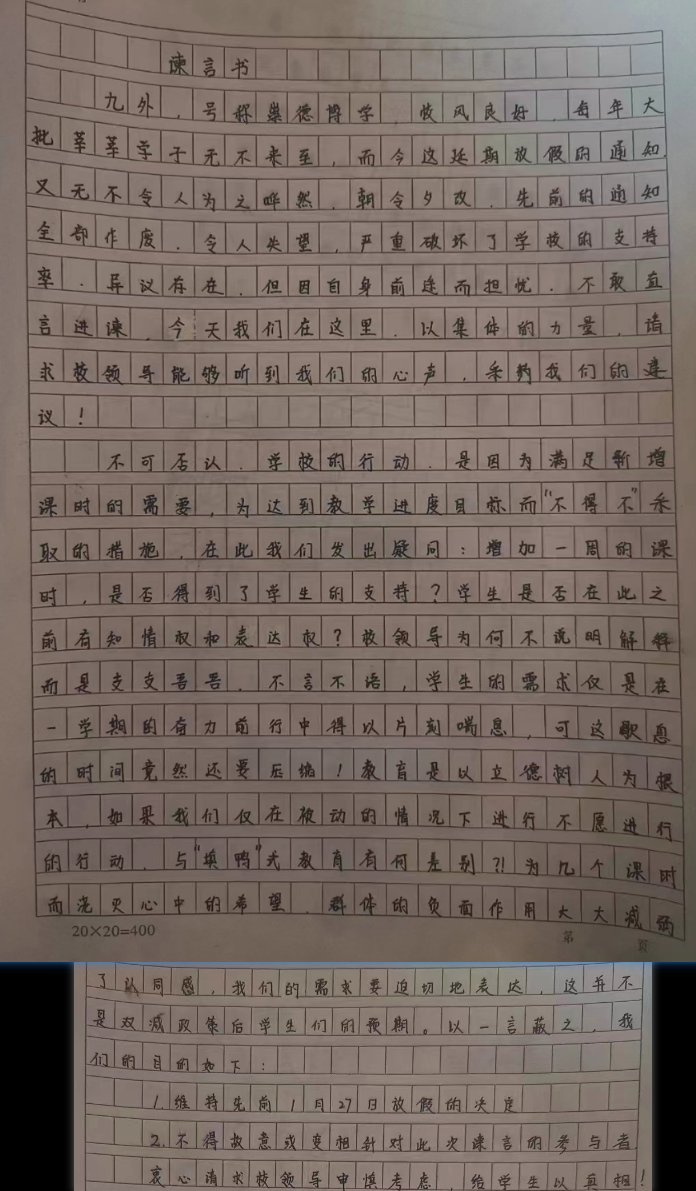 谏言书
九外，号称崇德博学，校风良好，每年大
批莘莘学子无不来至，而今这延期放假的通知，
又无不令人为之哗然，朝令夕改，先前的通知
全部作废，令人失望，严重破坏了学校的支持
率．异议存在，但因自身前途而担忧．不敢直
言进谏，今天我们在这里．以集体的力量，请
求校领导能够听到我们的心声，采纳我们的建
议！
不可否认．学校的行动．是因为满足新增
课时的需要，为达到教学进度目标而“不得不”采
取的措施，在此我们发出疑问：增加一周的课
时，是否得到了学生的支持？学生是否在此之
前有知情权和表达权？校领导为何不说明解释
而是支支吾吾．不言不语，学生的需求仅是在
一学期的奋力前行中得以片刻喘息，可这歇息
的时间竟然还要压缩！教育是以立德树人为根
本，如果我们仅在被动的情况下进行不愿进行
的行动．与“填鸭”式教育有何差别?!为几个课时
而浇灭心中的希望．群体的负面作用大大减弱
20×20=400
第 页
了认同感，我们的需求要迫切地表达，这并不
是双减政策后学生们的预期。以一言蔽之，我
们的目的如下：
1.维持先前1月27日放假的决定
2.不得故意或变相针对此次谏言的参与者
衷心请求校领导审慎考虑，给学生以真相！